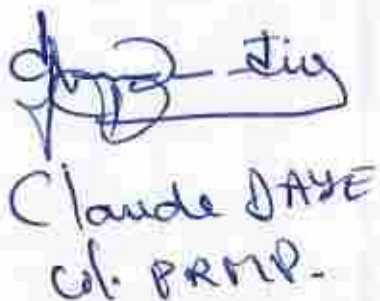 Claude DAYE
Col. PRMP.